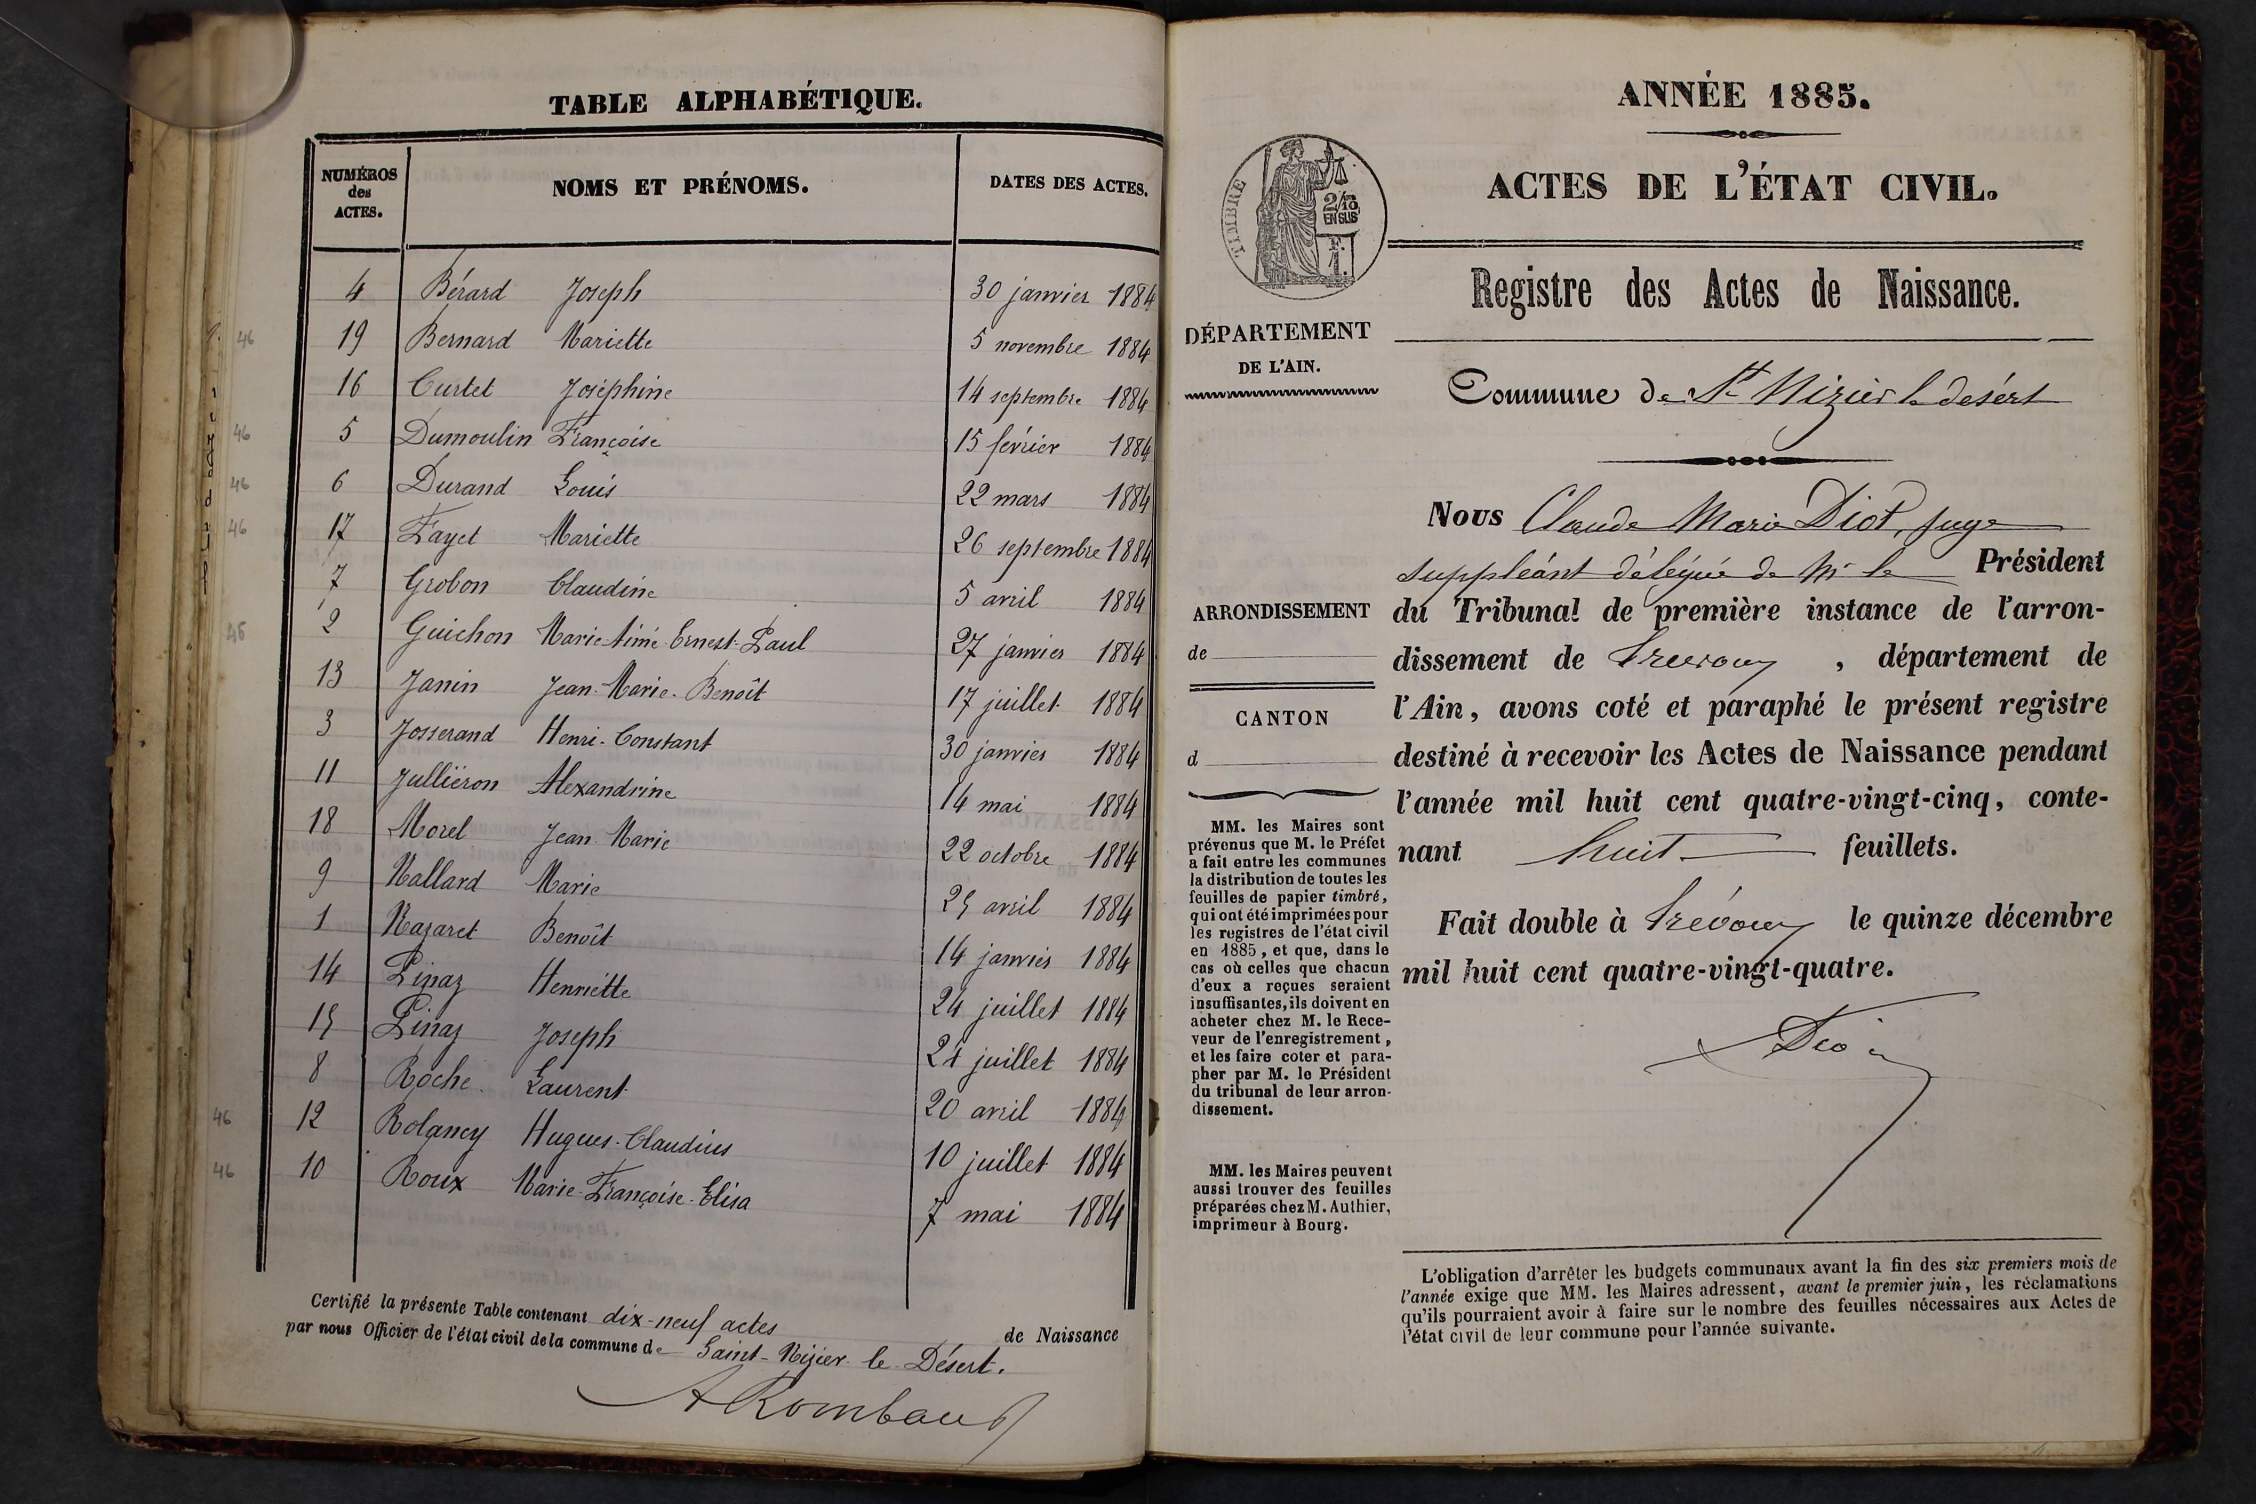 TABLE ALPHABÉTIQUE.
NUMÉROS des ACTES. NOMS ET PRÉNOMS. DATES DES ACTES.
4 Bérard Joseph 30 janvier 1884
46 19 Bernard Mariette 5 novembre 1884
16 Curtet Joséphine 14 septembre 1884
46 5 Dumoulin Françoise 15 février 1884
46 6 Durand Louis 22 mars 1884
46 17 Fayet Mariette 26 septembre 1884
7 Grobon Claudine 5 avril 1884
46 2 Guichon Marie-Aimé-Ernest-Paul 27 janvier 1884
13 Janin Jean-Marie-Benoît 17 juillet 1884
3 Josserand Henri-Constant 30 janvier 1884
11 Julliéron Alexandrine 14 mai 1884
18 Morel Jean Marie 22 octobre 1884
9 Nallard Marie 25 avril 1884
1 Nazaret Benoît 14 janvier 1884
14 Pinaz Henriette 24 juillet 1884
15 Pinaz Joseph 24 juillet 1884
8 Roche Laurent 20 avril 1884
46 12 Rolancy Hugues-Claudius 10 juillet 1884
46 10 Roux Marie-Françoise-Elisa 7 mai 1884
Certifié la présente Table contenant dix-neuf actes de Naissance
par nous Officier de l'état civil de la commune de Saint-Nizier-le-Désert.
ARombaud
ANNÉE 1885.
ACTES DE L'ÉTAT CIVIL.
TIMBRE
2/10
EN SUS
F.
1.
Registre des Actes de Naissance.
DÉPARTEMENT
DE L'AIN.
Commune de St Nizier le désert
Nous Claude Marie Diot, juge
suppléant délégué de Mr le Président
du Tribunal de première instance de l'arron-
dissement de Trévoux, département de
l'Ain, avons coté et paraphé le présent registre
destiné à recevoir les Actes de Naissance pendant
l'année mil huit cent quatre-vingt-cinq, conte-
nant huit feuillets.
Fait double à Trévoux le quinze décembre
mil huit cent quatre-vingt-quatre.
Diot
ARRONDISSEMENT
de
CANTON
d
MM. les Maires sont
prévenus que M. le Préfet
a fait entre les communes
la distribution de toutes les
feuilles de papier timbré,
qui ont été imprimées pour
les registres de l'état civil
en 1885, et que, dans le
cas où celles que chacun
d'eux a reçues seraient
insuffisantes, ils doivent en
acheter chez M. le Rece-
veur de l'enregistrement,
et les faire coter et para-
pher par M. le Président
du tribunal de leur arron-
dissement.
MM. les Maires peuvent
aussi trouver des feuilles
préparées chez M. Authier,
imprimeur à Bourg.
L'obligation d'arrêter les budgets communaux avant la fin des six premiers mois de
l'année exige que MM. les Maires adressent, avant le premier juin, les réclamations
qu'ils pourraient avoir à faire sur le nombre des feuilles nécessaires aux Actes de
l'état civil de leur commune pour l'année suivante.